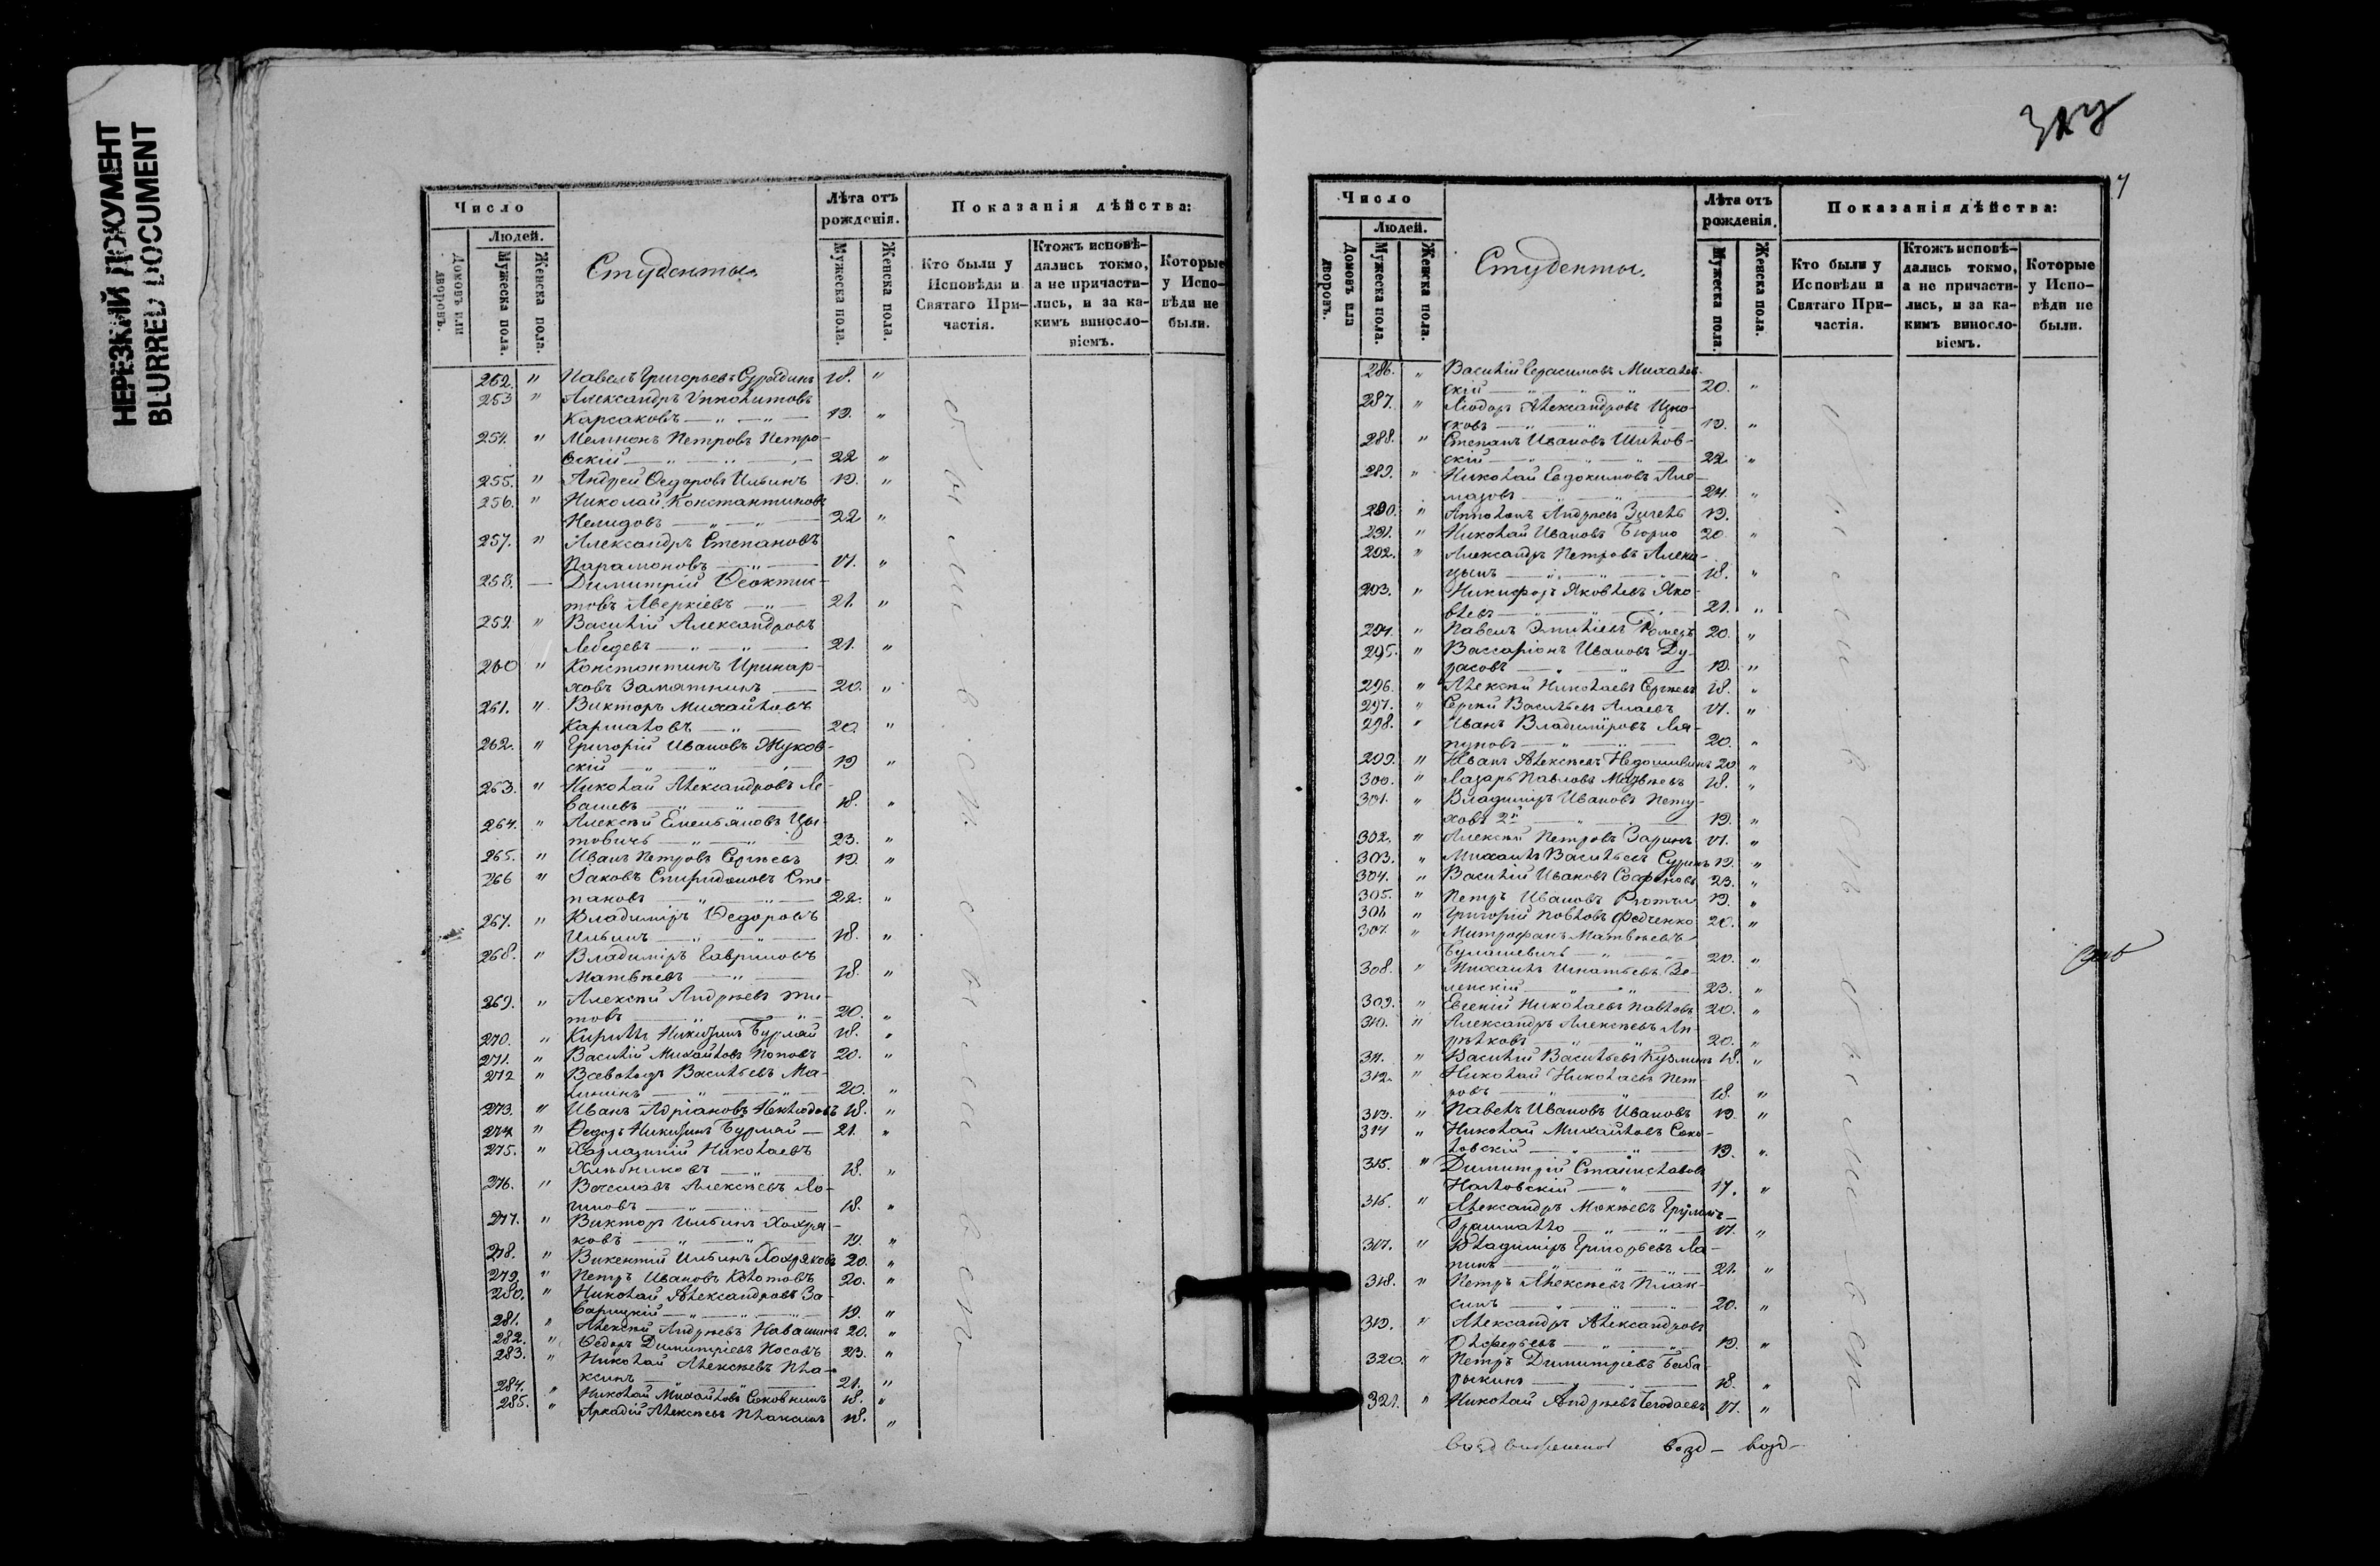 НЕРЕЗКИЙ ДОКУМЕНТ
BLURRED DOCUMENT
Число
Людей.
Домовъ или дворовъ.
Мужеска пола.
Женска пола.
Студенты.
Лѣта отъ рожденія.
Мужеска пола.
Женска пола.
Показанія дѣйства:
Кто были у Исповѣди и Святаго При-
частія.
Ктожъ исповѣ-
дались токмо,
а не причасти-
лись, и за ка-
кимъ виносло-
віемъ.
Которые
у Испо-
вѣди не
были.
252. " Павелъ Григорьевъ 18. "
253 " Александръ Ипполитовъ
Карсаковъ — " — " — 19. "
254. " Мемнонъ Петровъ Петро-
вскій — " — " — 22 "
255. " Андрей Ѳедоровъ Ильинъ 19. "
256. " Николай Константиновъ
Нелидовъ — " — 22 "
257. " Александръ Степановъ
Парамоновъ — " — 17. "
258. — Димитрій Ѳеоктис-
товъ Аверкіевъ — " — 21. "
259. " Василій Александровъ
Лебедевъ — " — " — 21. "
260 " Константинъ Иринар-
ховъ Замятнинъ — 20. "
261. " Викторъ Михайловъ
Кармаловъ — " — 20. "
262. " Григорій Ивановъ Жуков-
скій — " — " — 19 "
263. " Николай Александровъ Ле-
вашевъ — " — " — 18. "
264. " Алексѣй Емельяновъ Цы-
товичъ — " — " — 23. "
265. " Иванъ Петровъ Сергѣевъ 19. "
266 " Іаковъ Спиридоновъ Сте-
пановъ — " — " — 22. "
267. " Владиміръ Ѳедоровъ
Ильинъ — " — " — 18. "
268. " Владиміръ Гавриловъ
Матвѣевъ — " — 18. "
269. " Алексѣй Андреевъ Ти-
товъ — " — " — 20. "
270. " Кириллъ Никитинъ Бурмай 18. "
271. " Василій Михайловъ Поповъ 20. "
272 " Всеволодъ Васильевъ Ма-
лининъ — " — " — 20. "
273. " Иванъ Адріановъ Неклюдовъ 18. "
274 " Ѳедоръ Никитинъ Бурмай — 21. "
275. " Харлампій Николаевъ
Хлѣбниковъ — " — 18. "
276. " Вячеславъ Алексѣевъ Ло-
гиновъ — " — 18. "
277. " Викторъ Ильинъ Хохря-
ковъ — " — " — 19. "
278. " Викентій Ильинъ Хохряковъ 20. "
279. " Петръ Ивановъ 20. "
280. " Николай Александровъ За-
варицкій — " — " — 19. "
281. " Алексѣй Андреевъ Навашинъ 20. "
282. " Ѳедоръ Димитріевъ Носовъ 23. "
283. " Николай Алексѣевъ Пла-
ксинъ — " — 21. "
284. " Николай Михайловъ Соковнинъ 18. "
285. " Аркадій Алексѣевъ Плаксинъ 18. "
Были в. сп. были в. сп.
Число
Людей.
Домовъ или дворовъ.
Мужеска пола.
Женска пола.
Студенты.
Лѣта отъ рожденія.
Мужеска пола.
Женска пола.
Показанія дѣйства:
Кто были у Исповѣди и Святаго При-
частія.
Ктожъ исповѣ-
дались токмо,
а не причасти-
лись, и за ка-
кимъ виносло-
віемъ.
Которые
у Испо-
вѣди не
были.
286. " Василій Герасимовъ Михалев-
скій — " — " — 20. "
287. " Ліодоръ Александровъ
сковъ — " — " — 19. "
288. " Степанъ Ивановъ Шилов-
скій — " — " — 22. "
289. " Николай Евдокимовъ Ал-
мазовъ — " — 24. "
290. " Апполонъ Андреевъ 19.
291. " Николай Ивановъ Бюрно 20. "
292. " Александръ Петровъ
цынъ — " — " — 18. "
293. " Никифоръ Яковлевъ Яко-
влевъ — " — " — 21. "
294. " Павелъ Эмиліевъ 20. "
295. " Вассаріонъ Ивановъ Ду-
расовъ — " — 19. "
296. " Алексѣй Николаевъ Сергѣевъ 18. "
297. " Сергѣй Васильевъ 17. "
298. " Иванъ Владиміровъ Ля-
пуновъ — " — " — 20. "
299. " Иванъ Алексѣевъ Недошивинъ 20 "
300. " Лазарь Павловъ Матвѣевъ 18. "
301. " Владиміръ Ивановъ Пету-
ховъ 2й — " — 19. "
302. " Алексѣй Петровъ Заринъ 17. "
303. " Михаилъ Васильевъ Суринъ 19. "
304. " Василій Ивановъ Софоновъ 23. "
305. " Петръ Ивановъ 19. "
306 " Григорій Павловъ Федченко 20. "
307. " Митрофанъ Матвѣевъ
Булашевичъ — " — 20. "
308. " Михаилъ Игнатьевъ Зе-
ленскій — " — " — 23. "
309. " Евгеній Николаевъ Павловъ 20. "
310. " Александръ Алексѣевъ Ап-
рѣлковъ — " — " — 20. "
311. " Василій Васильевъ Кузминъ 18. "
312. " Николай Николаевъ Пет-
ровъ — " — " — 18. "
313. " Павелъ Ивановъ Ивановъ 19. "
314 " Николай Михайловъ Соко-
ловскій — " — " — 19. "
315. " Димитрій Станиславовъ
Наловскій — " — 17. "
316. " Александръ Мокѣевъ
— " — 17. "
317. " Владиміръ Григорьевъ Ла-
пинъ — " — " — 21. "
318. " Петръ Алексѣевъ Плак-
синъ — " — " — 20. "
319. " Александръ Александровъ
Олферьевъ — " — " — 19. "
320. " Петръ Димитріевъ Баба-
рыкинъ — " — " — 18. "
321. " Николай Андреевъ Чегодаевъ 17. "
Были в. сп. были в. сп.